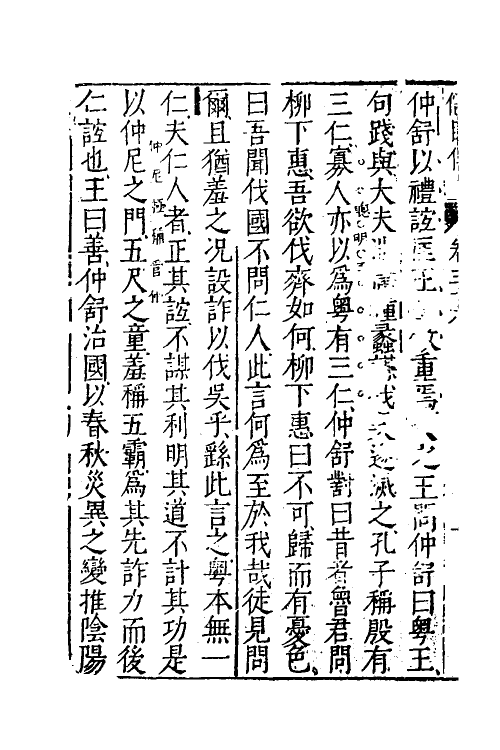 卷三六
仲舒以禮誼匡王王敬重焉久之王問仲舒曰粵王
句踐與大夫泄庸種蠡謀伐吳遂滅之孔子稱殷有
三仁寡人亦以爲粵有三仁仲舒對曰昔者魯君問
柳下惠吾欲伐齊如何柳下惠曰不可歸而有憂色
曰吾聞伐國不問仁人此言何爲至於我哉徒見問
爾且猶羞之况設詐以伐吳乎繇此言之粵本無一
仁夫仁人者正其誼不謀其利明其道不計其功是
以仲尼之門五尺之童羞稱五霸爲其先詐力而後
仁誼也王曰善仲舒治國以春秋災異之變推陰陽